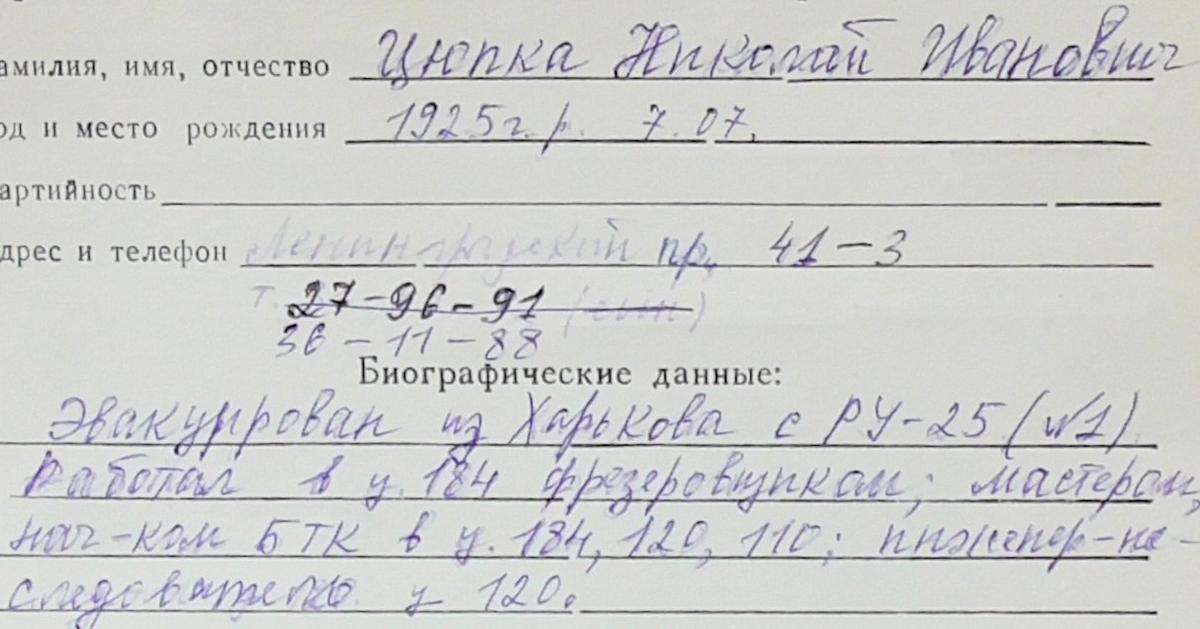 амилия, имя, отчество Цюпка Николай Иванович
од и место рождения 1925 г.р. 7.07.
артийность
дрес и телефон Ленинградский пр. 41-3
т. 27-96-91 (сын)
36-11-88
Биографические данные:
Эвакуирован из Харькова с РУ-25 (№1)
Работал в ц. 184 фрезеровщиком; мастером,
нач-ком БТК в ц. 184, 120, 110; инженер-ис-
следователь ц 120.